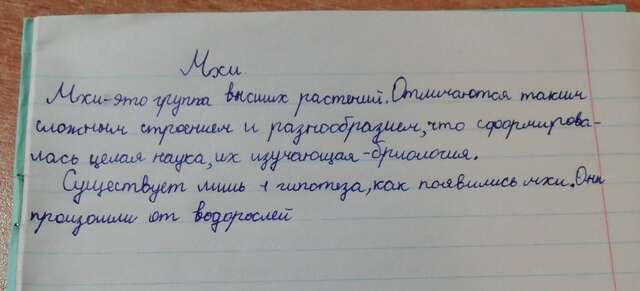 Мхи.
Мхи-это группа высших растений. Отличаются таким
сложным строением и разнообразием, что сформирова-
лась целая наука, их изучающая-бриология.
Существует лишь 1 гипотеза, как появились мхи. Они
произошли от водорослей